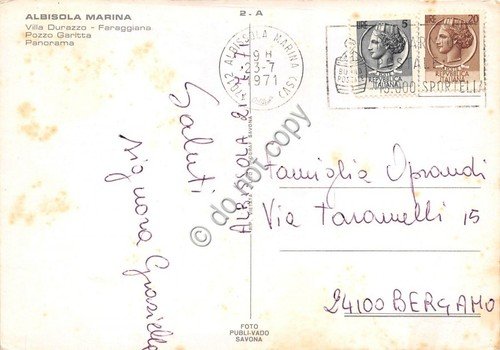 ALBISOLA MARINA
Villa Durazzo - Faraggiana
Pozzo Garitta
Panorama
2 - A
17012 ALBISOLA MARINA (SV)
9 H
-7
1971
5
20
15.000 SPORTELLI
ALBISOLA 21
Saluti
signora Graziella
Famiglia Oprandi
Via Taramelli 15
24100 BERGAMO
FOTO
PUBLI-VADO
SAVONA
do not copy